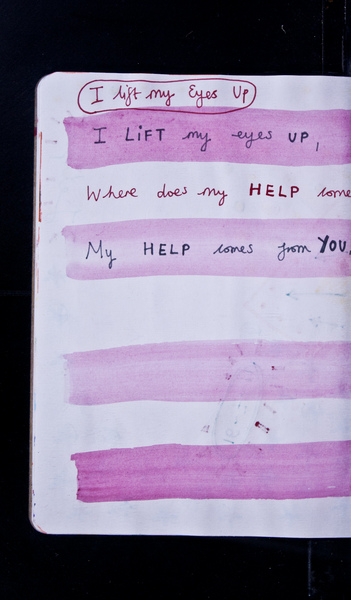 I lift my Eyes Up
I LiFT my eyes UP,
Where does my HELP come
My HELP comes from YOU,